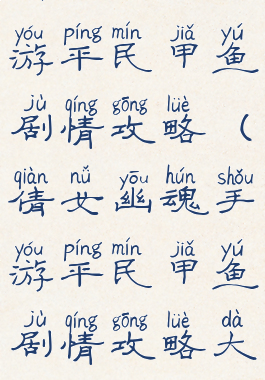 yóu píng mín jiǎ yú
游平民 甲鱼
jù qíng gōng lüè
剧情攻略 （
qiàn nǚ yōu hún shǒu
倩女幽魂手
yóu píng mín jiǎ yú
游平民 甲鱼
jù qíng gōng lüè dà
剧情攻略大